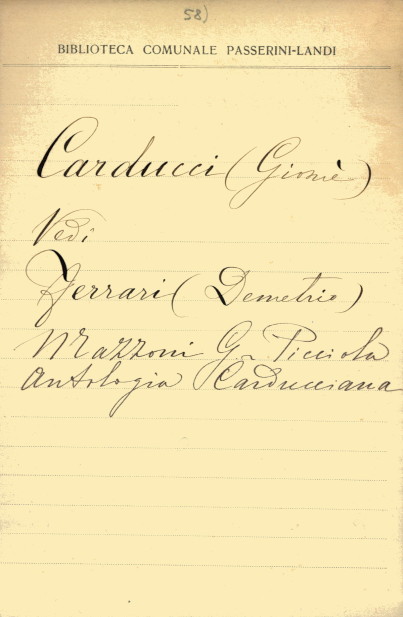 58)
BIBLIOTECA COMUNALE PASSERINI-LANDI
Carducci (Giosuè)
Vedi
Ferrari (Demetrio)
Mazzoni G. Picciola
Antologia Carducciana